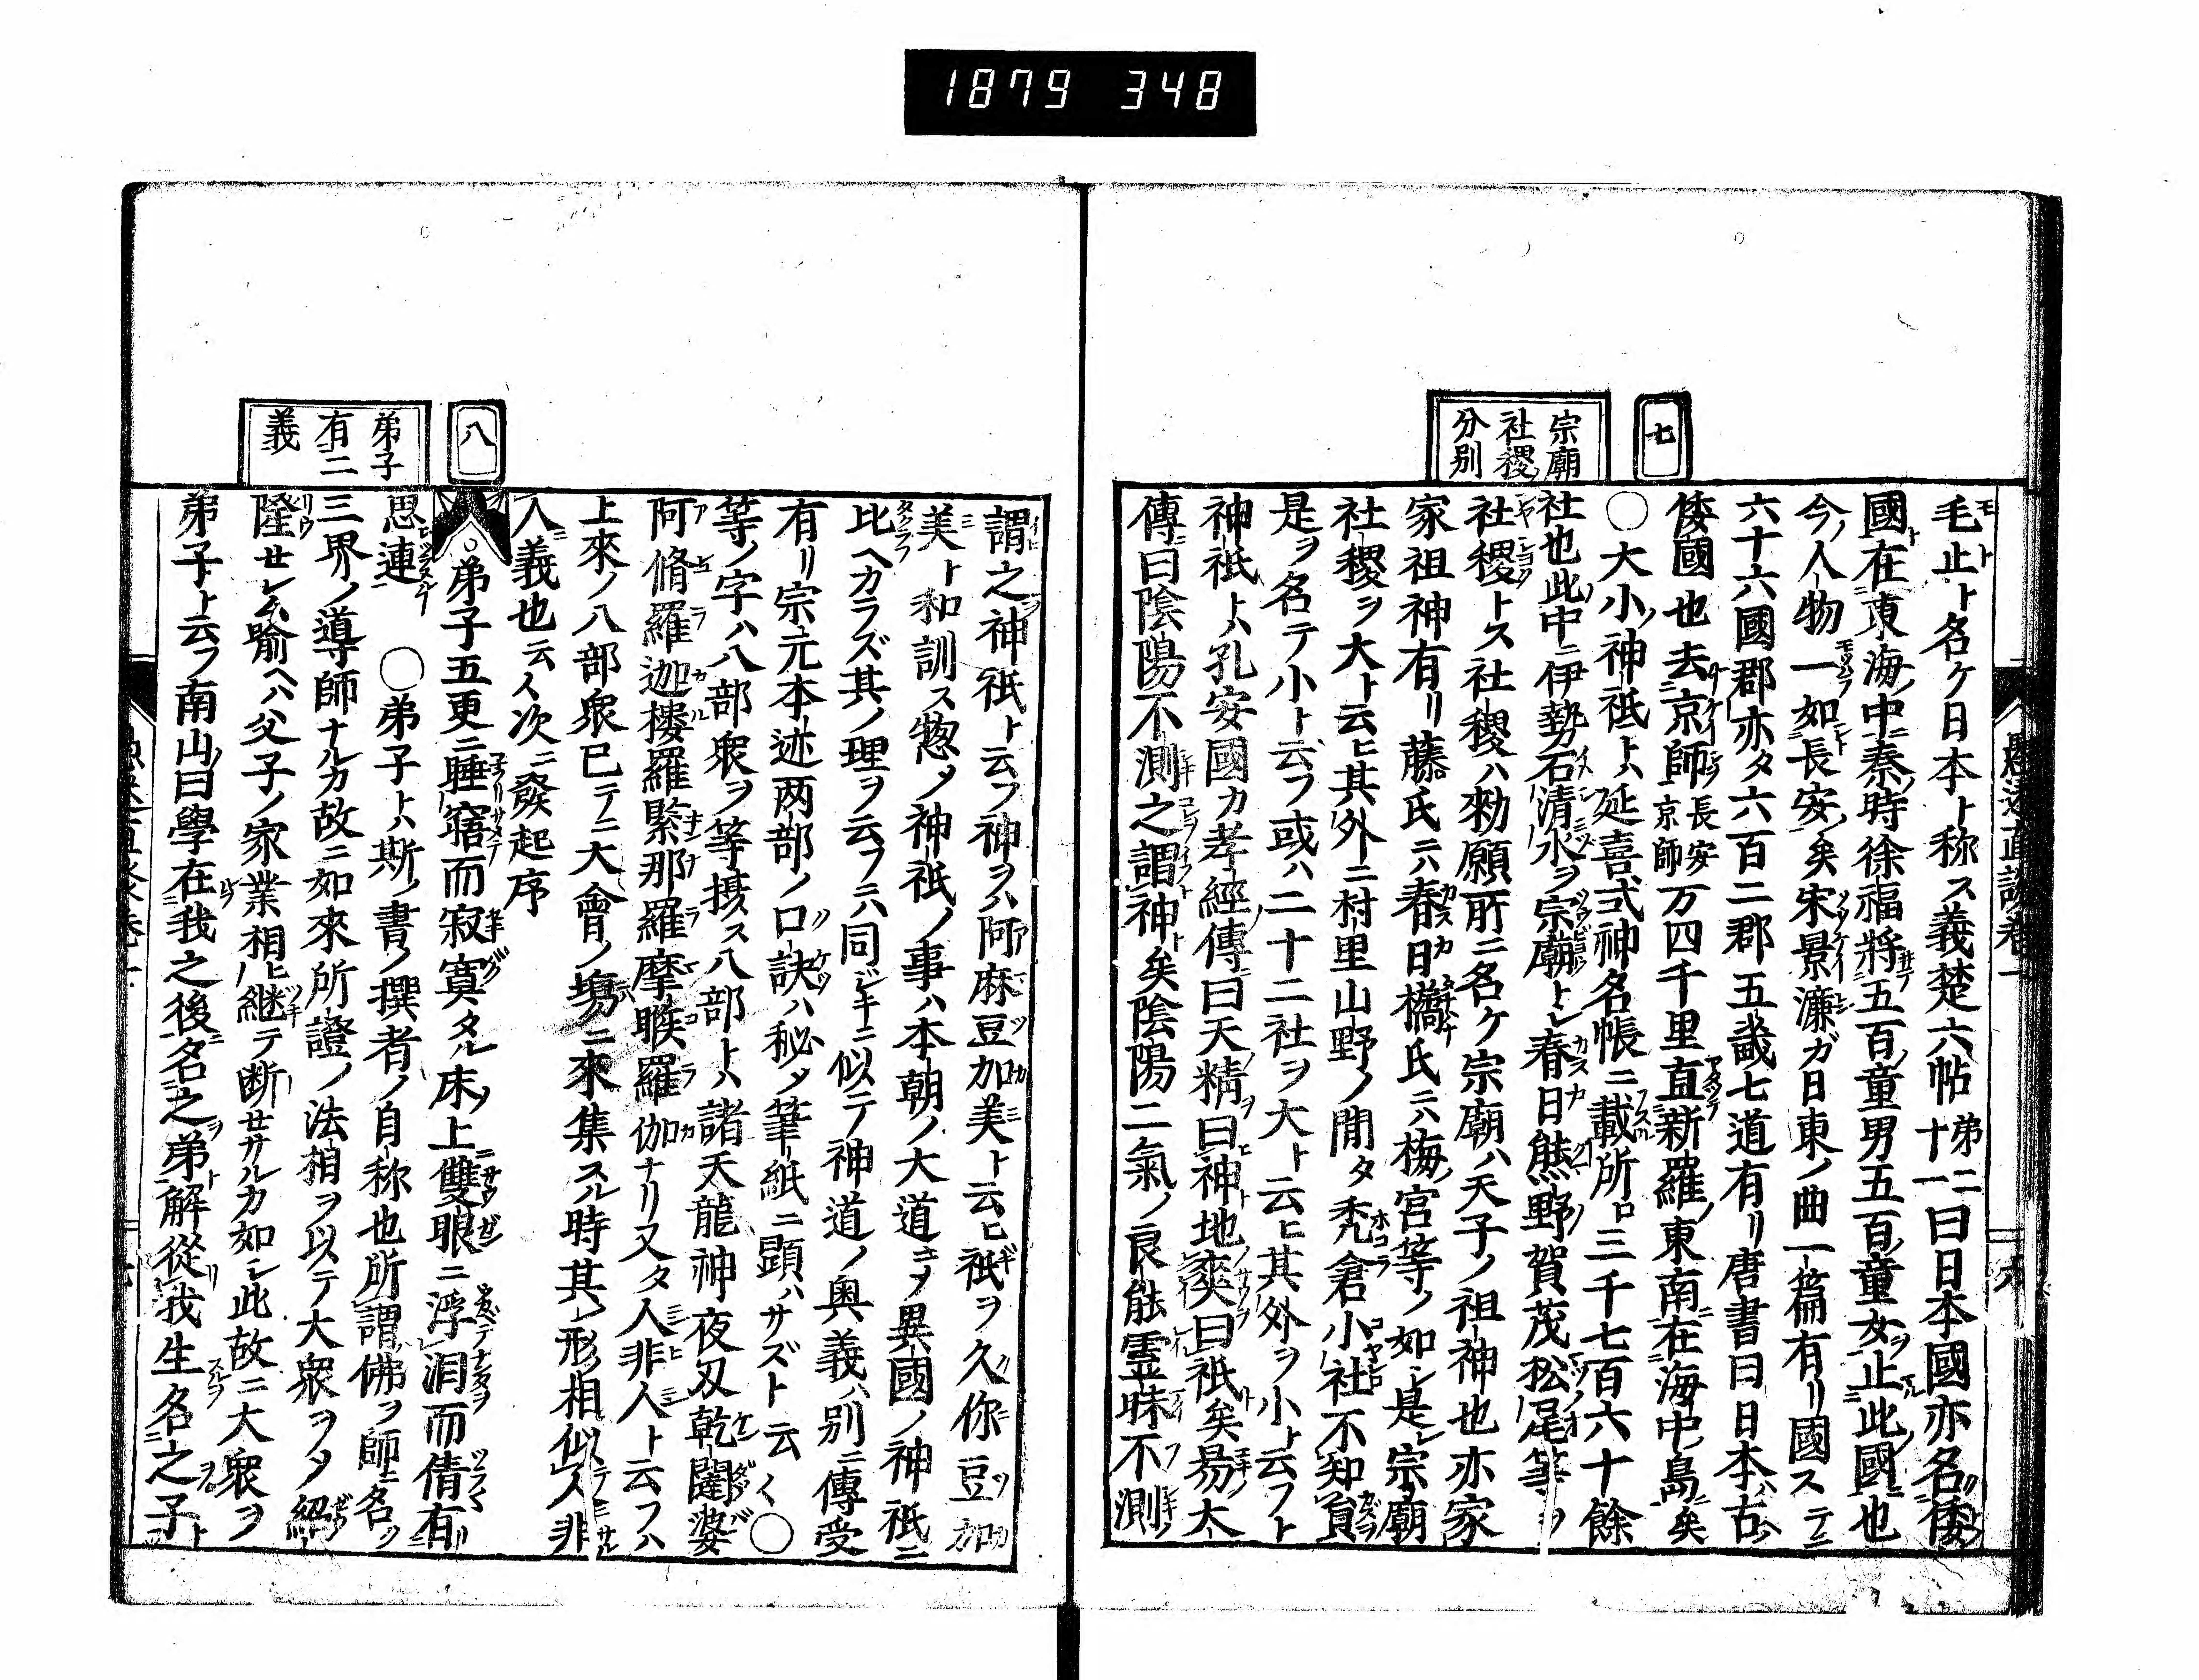 1879 348
七
宗廟
社稷
分別
毛止ト名ケ日本ト称ス義楚六帖第二十一曰日本國亦名倭
國在東海中秦時徐福將五百童男五百童女止此國也
今人物一如長安矣宋景濂ガ日東ノ曲一篇有リ國ステニ
六十六國郡亦タ六百二郡五畿七道有リ唐書曰日本古
倭國也去京師長安京師万四千里直新羅東南在海中島矣
○大小神祇トハ延喜式神名帳ニ載所ロ三千七百六十餘
社也此中ニ伊勢石清水ヲ宗廟トシ春日熊野賀茂松尾等ヲ
社稷トス社稷ハ勅願所ニ名ケ宗廟ハ天子ノ祖神也亦家
家祖神有リ藤氏ニハ春日橘氏ニハ梅宮等ノ如シ是レ宗廟
社稷ヲ大ト云ヒ其外ニ村里山野ノ間タ禿倉小社不知員
是ヲ名テ小ト云フ或ハ二十二社ヲ大ト云ヒ其外ヲ小ト云フト
神祇トハ孔安國カ孝經傳曰天精曰神地霊曰祇矣易大
傳曰陰陽不測之謂神矣陰陽二氣ノ良能霊昧不測
謂之神祇ト云フ神ヲハ阿麻豆加美ト云ヒ祇ヲ久你豆加
美ト和訓ス惣シテ神祇ノ事ハ本朝ノ大道ユヘ異國ノ神祇ニ
比ヘカラズ其ノ理ヲ云フニハ同ジキニ似テ神道ノ奥義ハ別ニ傳受
有リ宗元本迹两部ノ口訣ハ秘シテ筆紙ニ顕ハサズト云云○
等ノ字ハ八部衆ヲ等摂ス八部トハ諸天龍神夜叉乾闥婆
阿脩羅迦樓羅緊那羅摩睺羅伽ナリ又タ人非人ト云フハ
上來ノ八部衆已テニ大會ノ塲ニ來集スル時其ノ形相似人非
人義也云云次ニ發起序
八
弟子
有二
義
○弟子五更ニ睡寤而寂寞タル床ノ上ニ雙眼ニ浮涙而倩有
思連 ○弟子トハ斯ノ書ノ撰者ノ自称也所謂佛ヲ師ニ名ク
三界ノ導師ナルカ故ニ如來所證ノ法相ヲ以テ大衆ヲシテ紹
隆セシム喻ヘハ父子ノ家業相ヒ継テ断セサルカ如シ此故ニ大衆ヲ
弟子ト云フ南山曰學在我之後名之弟解從我生名之子